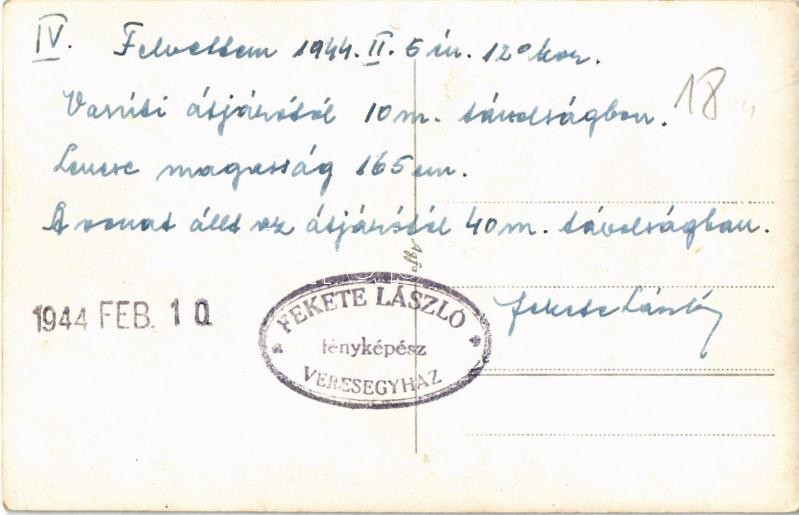 IV. Felvettem 1944. II. 5 én. 12° kor.
18
Vasúti átjárótól 10 m. távolságban.
Lencse magasság 165 cm.
A vonat állt az átjárótól 40 m. távolságban.
Fekete László
1944 FEB. 10
FEKETE LÁSZLÓ
fényképész
VERESEGYHÁZ